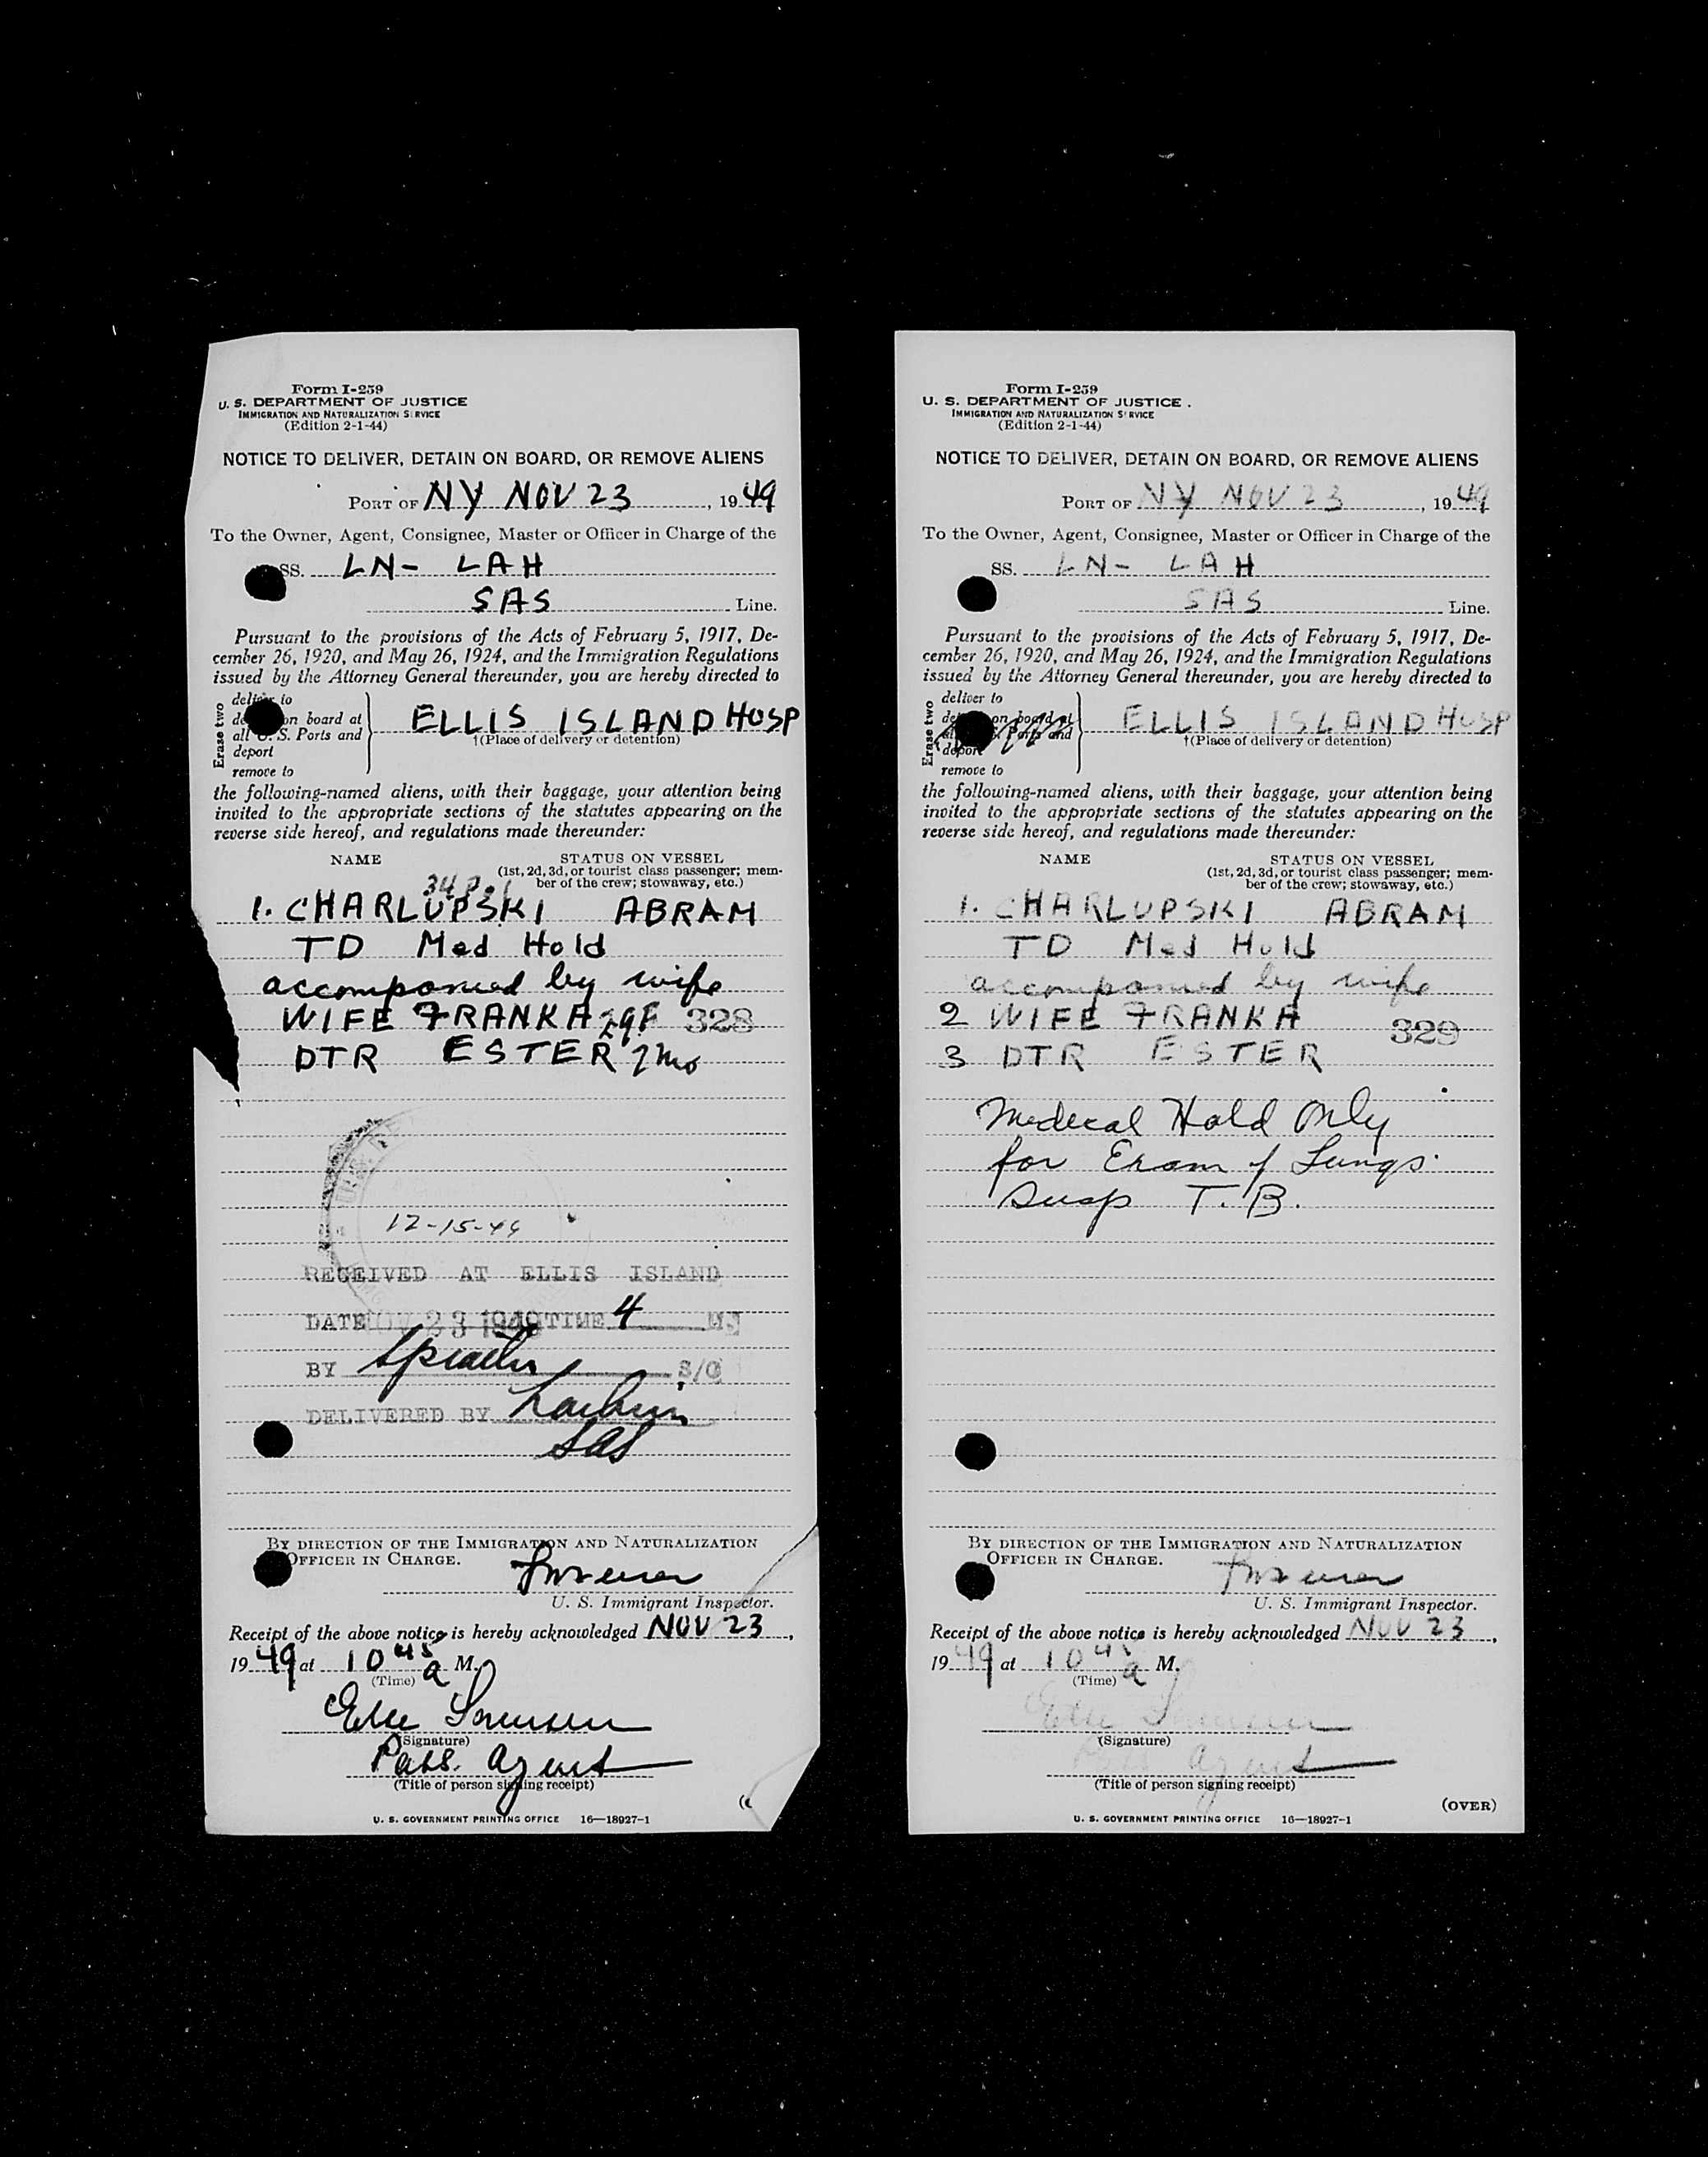 Form I-259
U. S. DEPARTMENT OF JUSTICE
IMMIGRATION AND NATURALIZATION S RVICE
(Edition 2-1-44)
NOTICE TO DELIVER, DETAIN ON BOARD, OR REMOVE ALIENS
PORT OF NY NOV 23, 19 49
To the Owner, Agent, Consignee, Master or Officer in Charge of the
SS. LN- LAH
SAS Line.
Pursuant to the provisions of the Acts of February 5, 1917, De-
cember 26, 1920, and May 26, 1924, and the Immigration Regulations
issued by the Attorney General thereunder, you are hereby directed to
Erase two
deliver to
on board at
all U. S. Ports and
deport
remove to
ELLIS ISLAND HOSP
†(Place of delivery or detention)
the following-named aliens, with their baggage, your attention being
invited to the appropriate sections of the statutes appearing on the
reverse side hereof, and regulations made thereunder:
NAME STATUS ON VESSEL
(1st, 2d, 3d, or tourist class passenger; mem-
ber of the crew; stowaway, etc.)
34
1. CHARLUPSKI ABRAM
TD Med Hold
accompanied by wife
WIFE FRANKA 29F 328
DTR ESTER 7 Mo
12-15-49
RECEIVED AT ELLIS ISLAND
DATE NOV 23 1949 TIME 4 M
BY S/O
DELIVERED BY
SAS
BY DIRECTION OF THE IMMIGRATION AND NATURALIZATION
OFFICER IN CHARGE.
U. S. Immigrant Inspector.
Receipt of the above notice is hereby acknowledged NOV 23,
19 49 at 10 45 a M.
(Time)
Else Sorensen
(Signature)
Pass. Agent
(Title of person signing receipt)
U. S. GOVERNMENT PRINTING OFFICE 16—18927-1
Form I-259
U. S. DEPARTMENT OF JUSTICE.
IMMIGRATION AND NATURALIZATION S RVICE
(Edition 2-1-44)
NOTICE TO DELIVER, DETAIN ON BOARD, OR REMOVE ALIENS
PORT OF NY NOV 23, 19 49
To the Owner, Agent, Consignee, Master or Officer in Charge of the
SS. LN- LAH
SAS Line.
Pursuant to the provisions of the Acts of February 5, 1917, De-
cember 26, 1920, and May 26, 1924, and the Immigration Regulations
issued by the Attorney General thereunder, you are hereby directed to
Erase two
deliver to
on board at
Ports and
deport
remove to
ELLIS ISLAND HOSP
†(Place of delivery or detention)
the following-named aliens, with their baggage, your attention being
invited to the appropriate sections of the statutes appearing on the
reverse side hereof, and regulations made thereunder:
NAME STATUS ON VESSEL
(1st, 2d, 3d, or tourist class passenger; mem-
ber of the crew; stowaway, etc.)
1. CHARLUPSKI ABRAM
TD Med Hold
accompanied by wife
2 WIFE FRANKA 329
3 DTR ESTER
Medecal Hold Only
for Exam of Lungs.
Susp T.B.
BY DIRECTION OF THE IMMIGRATION AND NATURALIZATION
OFFICER IN CHARGE.
U. S. Immigrant Inspector.
Receipt of the above notice is hereby acknowledged NOV 23,
19 49 at 10 45 a M.
(Time)
Else Sorensen
(Signature)
Pass. Agent
(Title of person signing receipt)
(OVER)
U. S. GOVERNMENT PRINTING OFFICE 16—18927-1